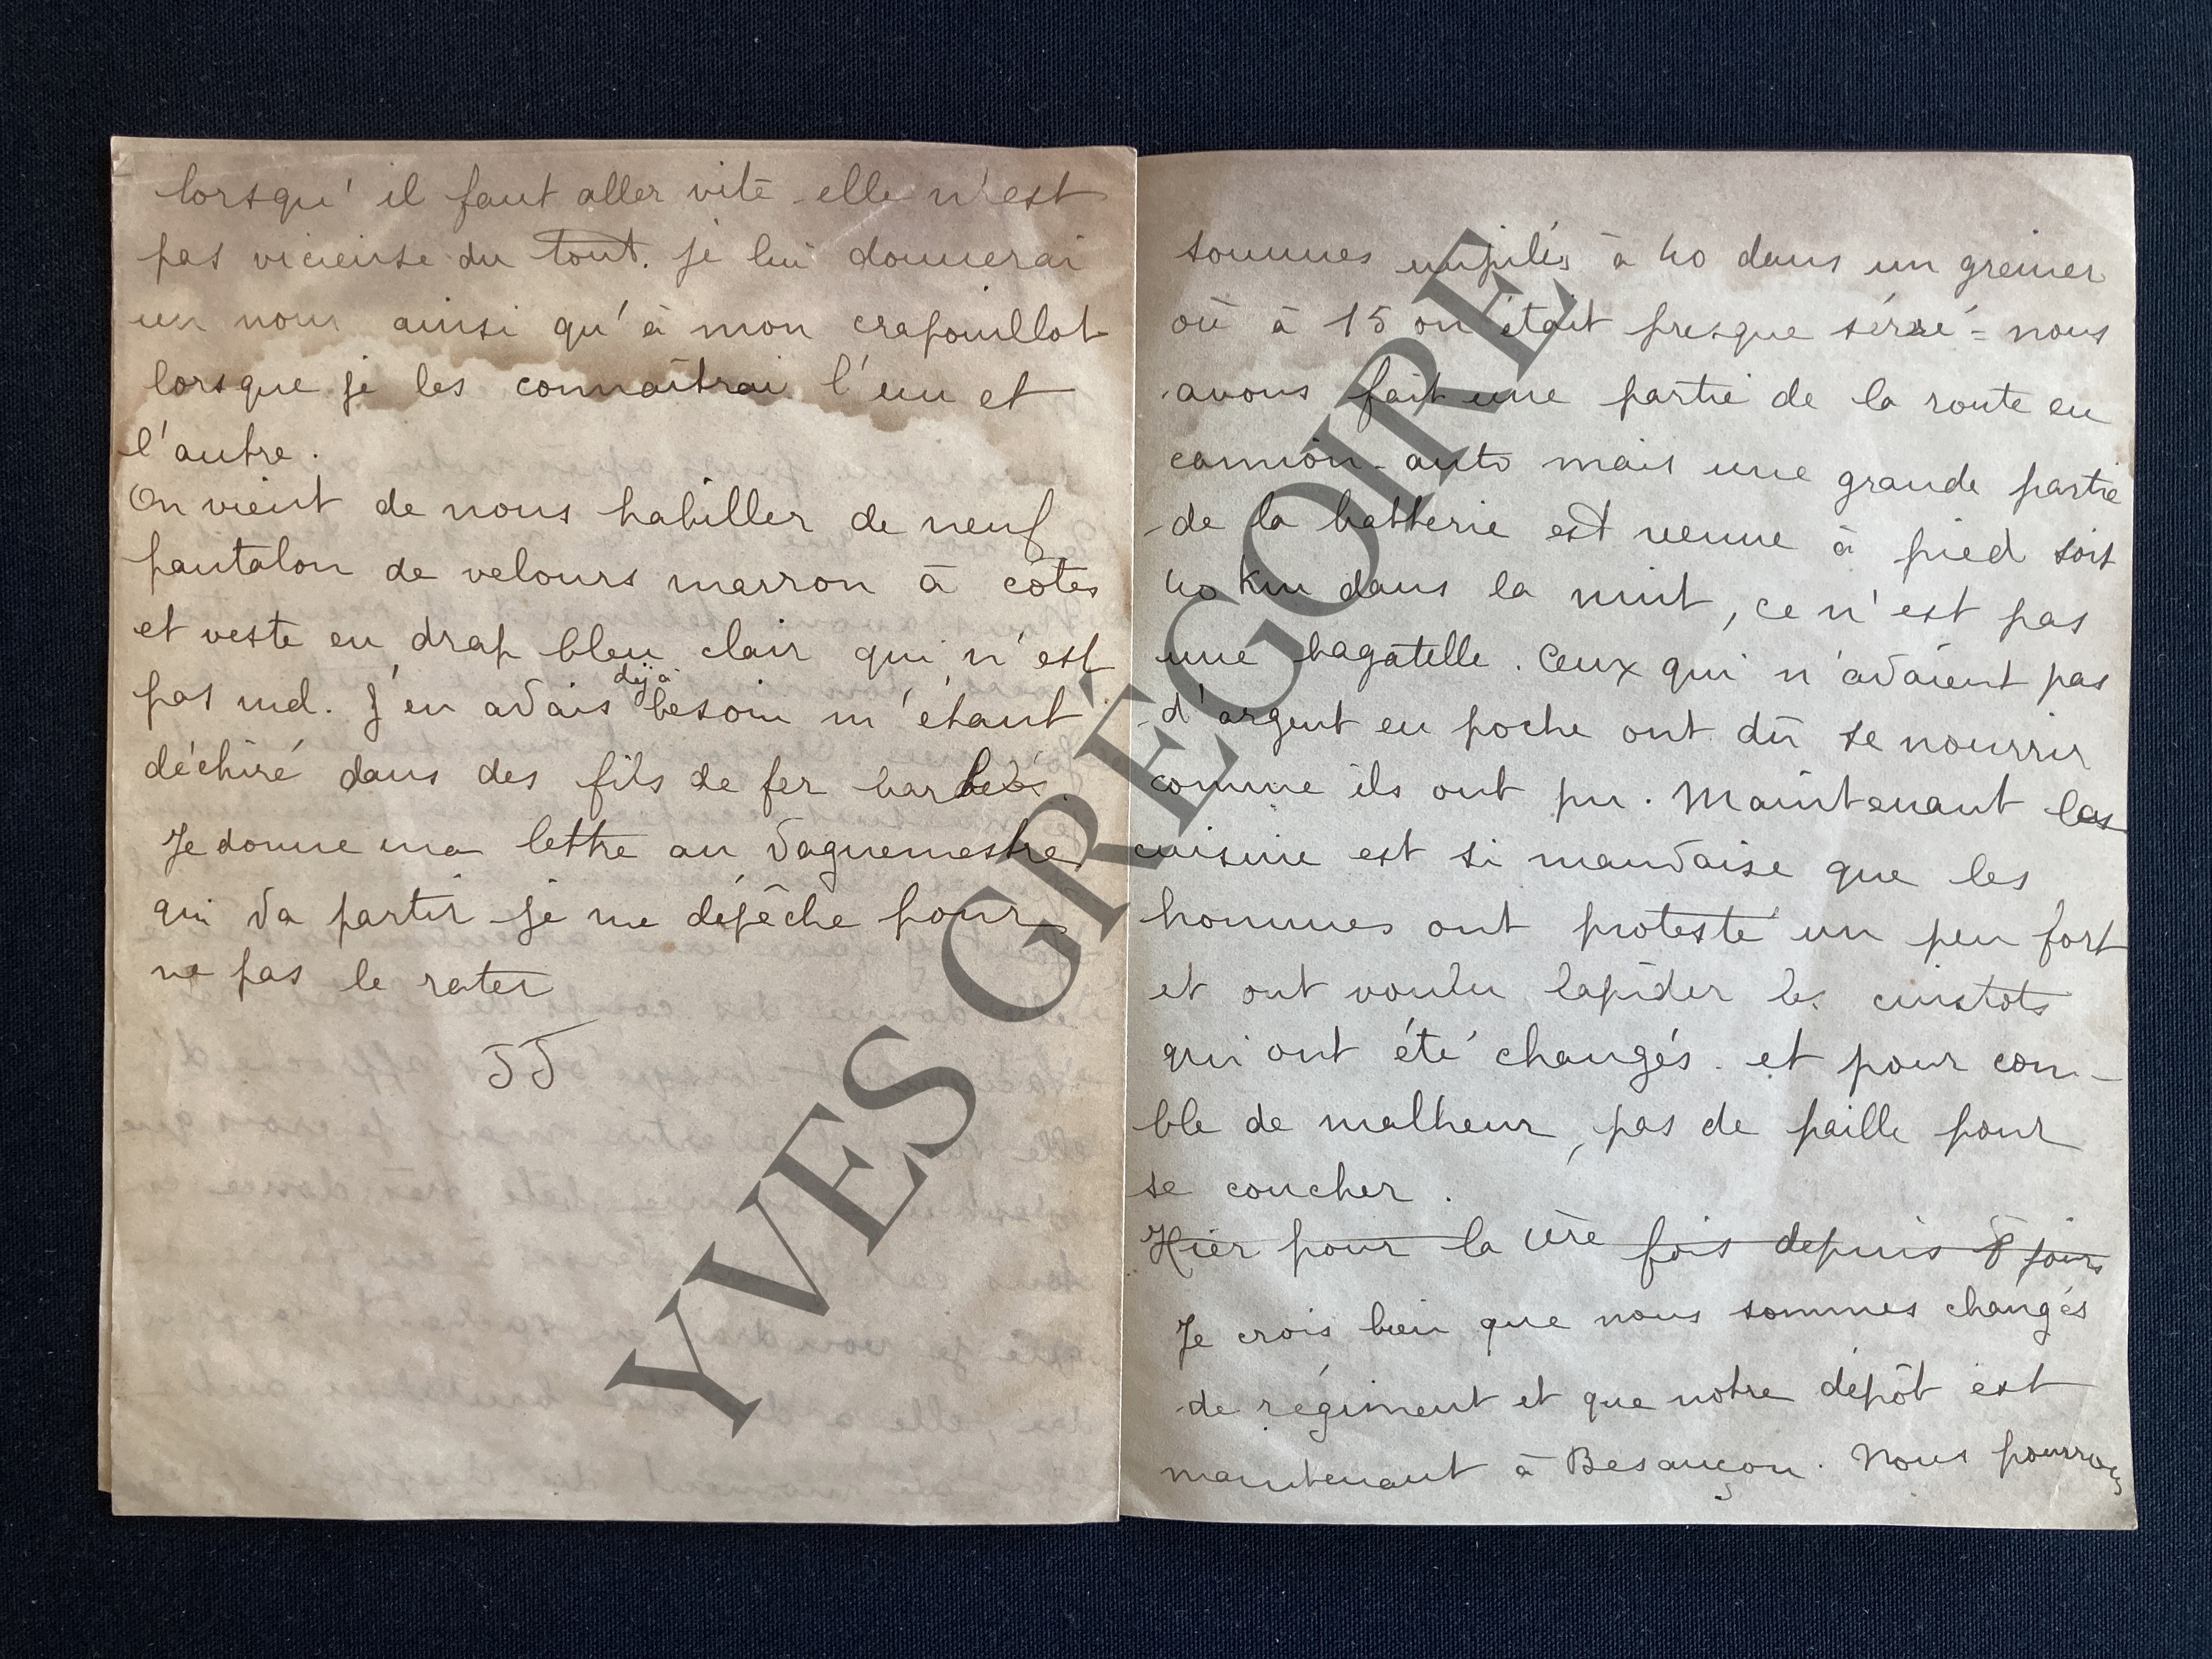 lorsqu'il faut aller vite elle n'est
pas vicieuse du tout. je lui donnerai
un nom ainsi qu'à mon crapouillot
lorsque je les connaîtrai l'un et
l'autre.
On vient de nous habiller de neuf
pantalon de velours marron à côtes
et veste en drap bleu clair qui n'est
pas mal. J'en avais déjà besoin m'étant
déchiré dans des fils de fer barbelés.
Je donne ma lettre au vaguemestre
qui va partir je me dépêche pour
ne pas le rater
JJ
sommes empilés à 40 dans un grenier
où à 15 on était presque serré = nous
avons fait une partie de la route en
camion-auto mais une grande partie
de la batterie est venue à pied soit
40 Km dans la nuit, ce n'est pas
une bagatelle. Ceux qui n'avaient pas
d'argent en poche ont dû se nourrir
comme ils ont pu. Maintenant la
cuisine est si mauvaise que les
hommes ont protesté un peu fort
et ont voulu lapider les cuistots
qui ont été changés. et pour com-
ble de malheur, pas de paille pour
se coucher.
Hier pour la 1ère fois depuis 8 jours
Je crois bien que nous sommes changés
de régiment et que notre dépôt est
maintenant à Besançon. Nous pourrons
YVES GRÉGOIRE